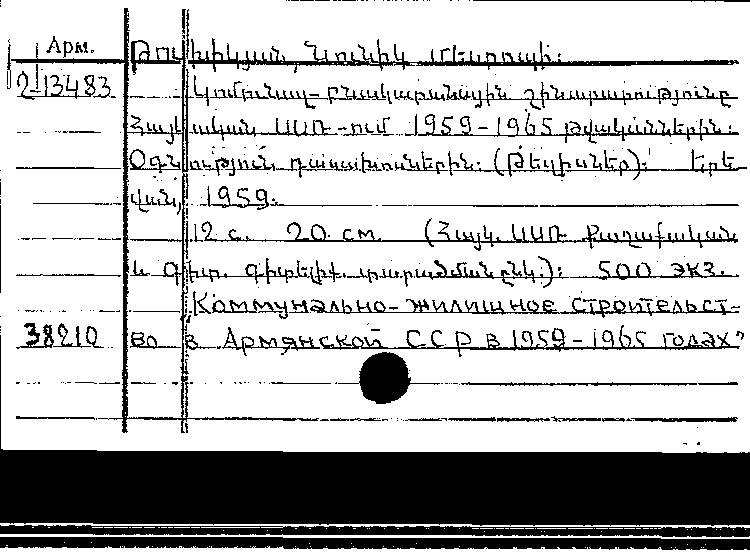 Арм.
Թուխիկյան, Սունիկ Մեսրոպի:
2-13483
Կոմունալ-բնակարանային շինարարությունը
Հայկական ՍՍՌ-ում 1959-1965 թվականներին:
Օգնություն դասախոսներին: (Թեզիսներ): Երե-
վան, 1959.
12 с. 20 см. (Հայկ. ՍՍՌ քաղաքական
և գիտ. գիտելիք. տարածման ընկ.): 500 экз.
Коммунально-жилищное строительст-
38210
во в Армянской ССР в 1959-1965 годах